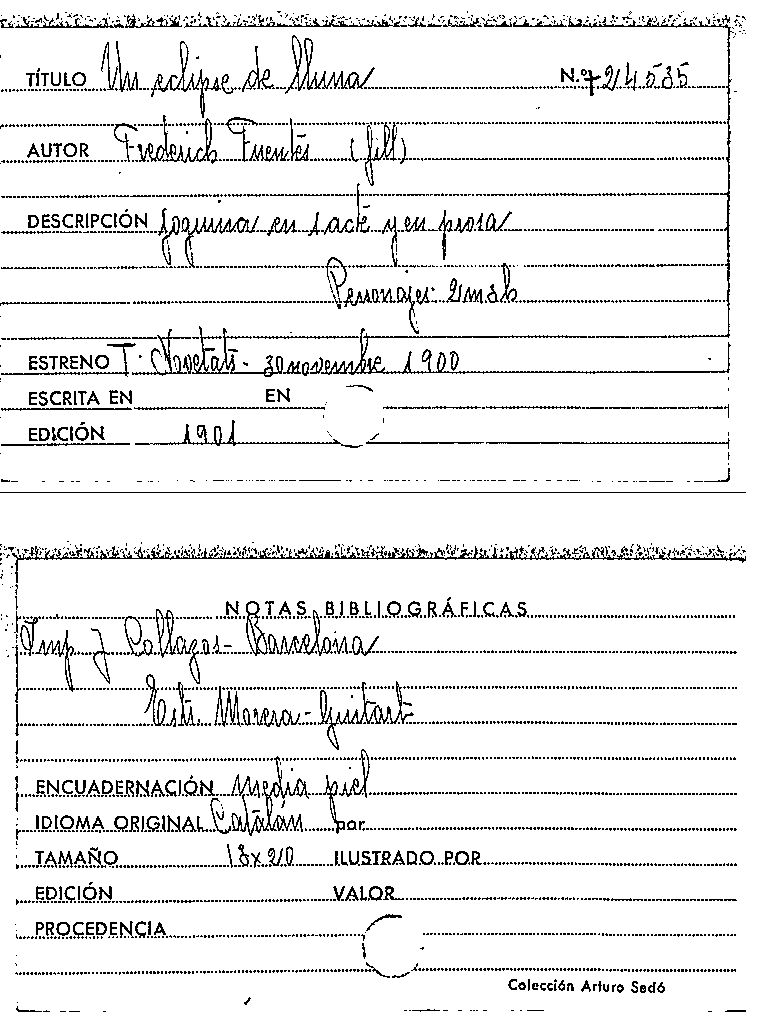 TÍTULO Un eclipse de lluna N.º 724535
AUTOR Frederich Fuentes (fill)
DESCRIPCIÓN Joguina en 1 acte y en prosa
Personajes: 2m 3h
ESTRENO T. Novetats - 30 novembre 1900
ESCRITA EN EN
EDICIÓN 1901
NOTAS BIBLIOGRÁFICAS
Imp J Collazos - Barcelona
Morera - Guitart
ENCUADERNACIÓN media piel
IDIOMA ORIGINAL Catalán por
TAMAÑO 13x20 ILUSTRADO POR
EDICIÓN VALOR
PROCEDENCIA
Colección Arturo Sedó